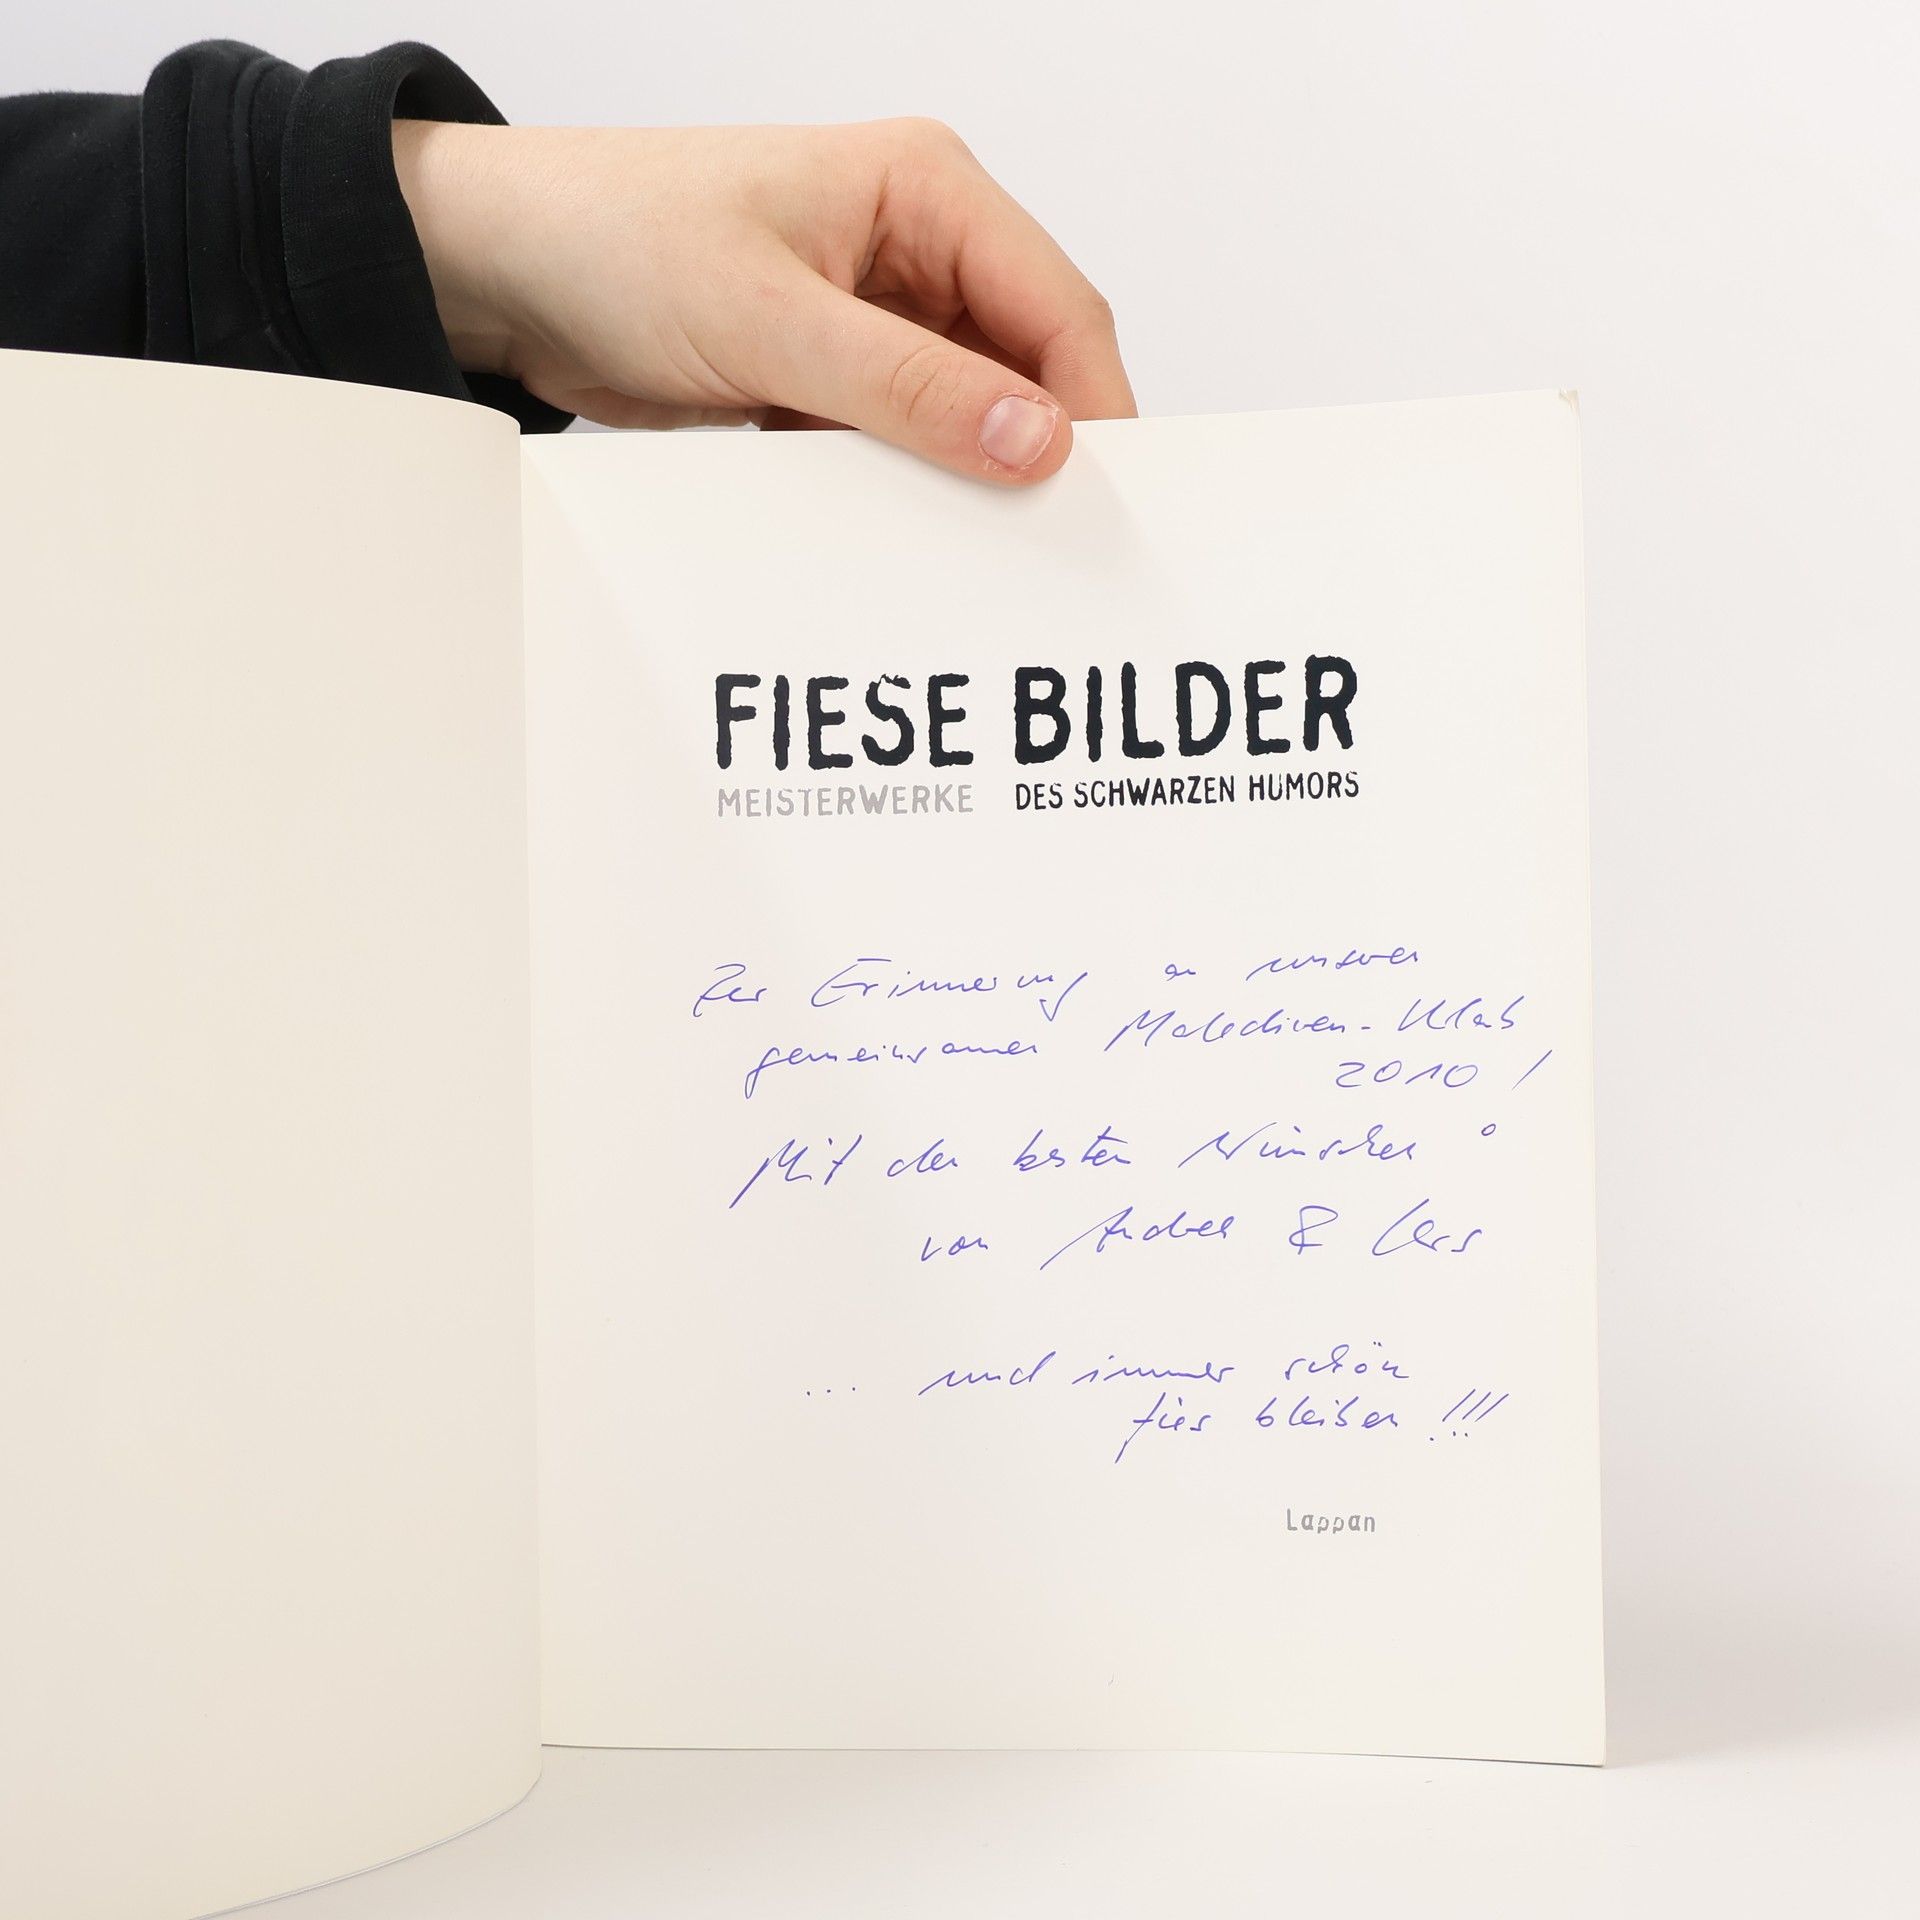 FIESE BILDER
MEISTERWERKE DES SCHWARZEN HUMORS
Zur Erinnerung an unseren
gemeinsamen Malediven-Urlaub
2010!
Mit den besten Wünschen
von Andrea & Lars
... und immer schön
fies bleiben!!!
Lappan